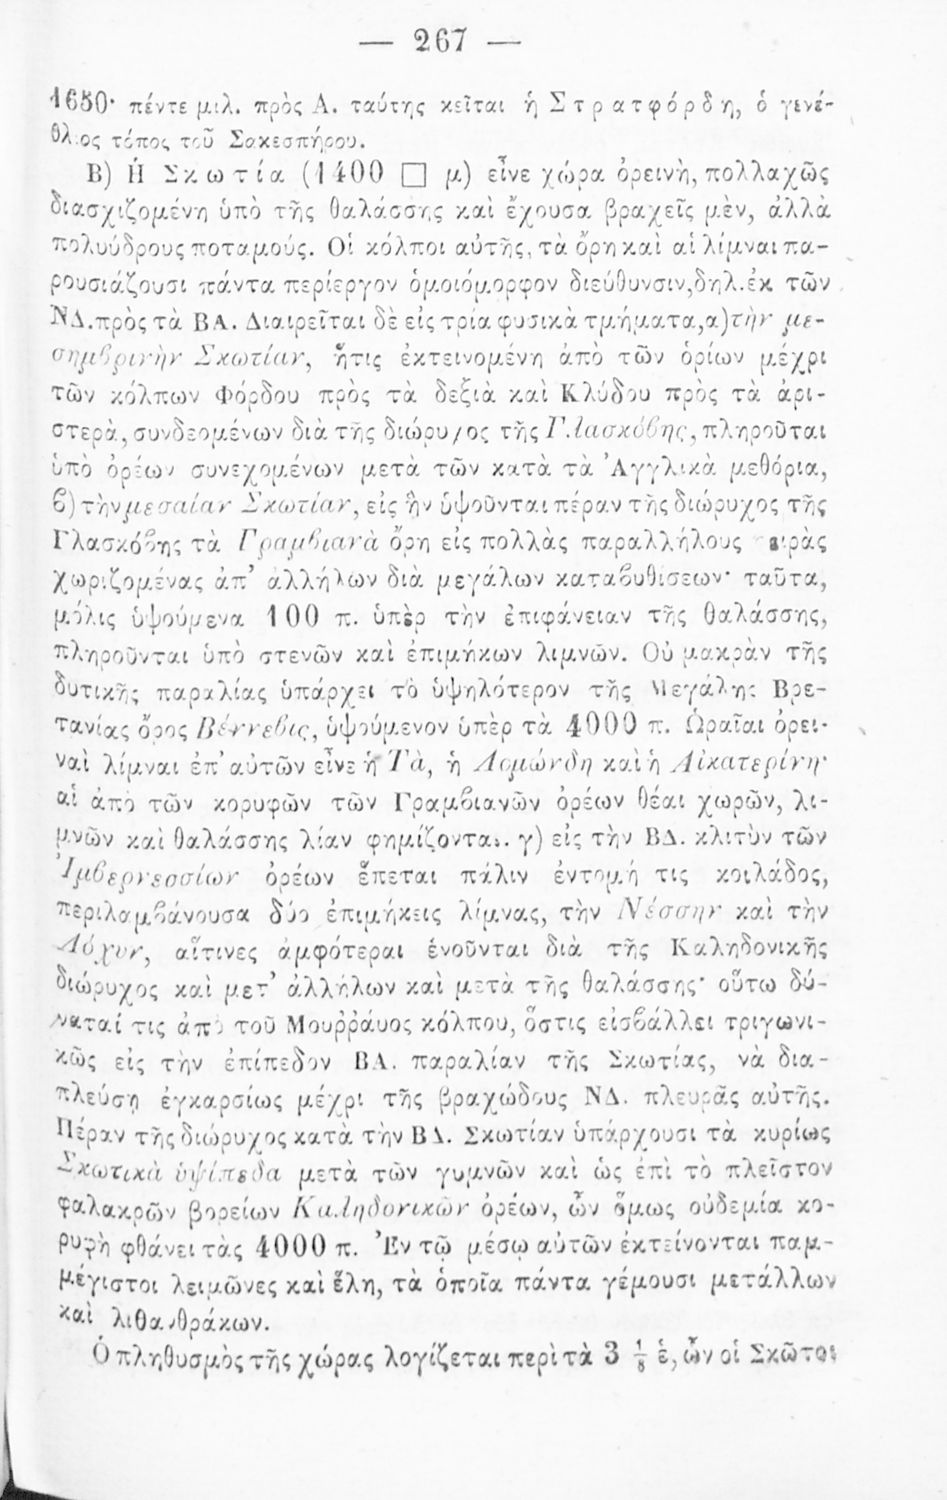 — 267 —
1650· πέντε μιλ. πρὸς Α. ταύτης κεῖται ἡ Στρατφόρδη, ὁ γενέ-
θλιος τόπος τοῦ Σακεσπήρου.
Β) Ἡ Σκωτία (1400 □ μ) εἶνε χώρα ὀρεινὴ, πολλαχῶς
διασχιζομένη ὑπὸ τῆς θαλάσσης καὶ ἔχουσα βραχεῖς μὲν, ἀλλὰ
πολυύδρους ποταμούς. Οἱ κόλποι αὐτῆς, τὰ ὄρη καὶ αἱ λίμναι πα-
ρουσιάζουσι πάντα περίεργον ὁμοιόμορφον διεύθυνσιν, δηλ. ἐκ τῶν
ΝΔ. πρὸς τὰ ΒΑ. Διαιρεῖται δὲ εἰς τρία φυσικὰ τμήματα, α) τὴν με-
σημβρινὴν Σκωτίαν, ἥτις ἐκτεινομένη ἀπὸ τῶν ὁρίων μέχρι
τῶν κόλπων Φόρδου πρὸς τὰ δεξιὰ καὶ Κλύδου πρὸς τὰ ἀρι-
στερὰ, συνδεομένων διὰ τῆς διώρυχος τῆς Γλασκόβης, πληροῦται
ὑπὸ ὀρέων συνεχομένων μετὰ τῶν κατὰ τὰ Ἀγγλικὰ μεθόρια,
β) τὴν μεσαίαν Σκωτίαν, εἰς ἣν ὑψοῦνται πέραν τῆς διώρυχος τῆς
Γλασκόβης τὰ Γραμβιανὰ ὄρη εἰς πολλὰς παραλλήλους σειρὰς
χωριζομένας ἀπ’ ἀλλήλων διὰ μεγάλων καταβυθίσεων· ταῦτα,
μόλις ὑψούμενα 100 π. ὑπὲρ τὴν ἐπιφάνειαν τῆς θαλάσσης,
πληροῦνται ὑπὸ στενῶν καὶ ἐπιμήκων λιμνῶν. Οὐ μακρὰν τῆς
δυτικῆς παραλίας ὑπάρχει τὸ ὑψηλότερον τῆς Μεγάλης Βρε-
τανίας ὄρος Βέννεβις, ὑψούμενον ὑπὲρ τὰ 4000 π. Ὡραῖαι ὀρει-
ναὶ λίμναι ἐπ’ αὐτῶν εἶνε ἡ Τὰ, ἡ Λομώνδη καὶ ἡ Αἰκατερίνη·
αἱ ἀπὸ τῶν κορυφῶν τῶν Γραμβιανῶν ὀρέων θέαι χωρῶν, λι-
μνῶν καὶ θαλάσσης λίαν φημίζονται. γ) εἰς τὴν ΒΔ. κλιτὺν τῶν
Ἰμβερνεσσίων ὀρέων ἕπεται πάλιν ἐντομή τις κοιλάδος,
περιλαμβάνουσα δύο ἐπιμήκεις λίμνας, τὴν Νέσσην καὶ τὴν
Λόχυν, αἵτινες ἀμφότεραι ἑνοῦνται διὰ τῆς Καληδονικῆς
διώρυχος καὶ μετ’ ἀλλήλων καὶ μετὰ τῆς θαλάσσης· οὕτω δύ-
ναταί τις ἀπὸ τοῦ Μουῤῥάυος κόλπου, ὅστις εἰσβάλλει τριγωνι-
κῶς εἰς τὴν ἐπίπεδον ΒΑ. παραλίαν τῆς Σκωτίας, νὰ δια-
πλεύσῃ ἐγκαρσίως μέχρι τῆς βραχώδους ΝΔ. πλευρᾶς αὐτῆς.
Πέραν τῆς διώρυχος κατὰ τὴν ΒΔ. Σκωτίαν ὑπάρχουσι τὰ κυρίως
Σκωτικὰ ὑψίπεδα μετὰ τῶν γυμνῶν καὶ ὡς ἐπὶ τὸ πλεῖστον
φαλακρῶν βορείων Καληδονικῶν ὀρέων, ὧν ὅμως οὐδεμία κο-
ρυφὴ φθάνει τὰς 4000 π. Ἐν τῷ μέσῳ αὐτῶν ἐκτείνονται παμ-
μέγιστοι λειμῶνες καὶ ἕλη, τὰ ὁποῖα πάντα γέμουσι μετάλλων
καὶ λιθανθράκων.
Ὁ πληθυσμὸς τῆς χώρας λογίζεται περὶ τὰ 3 ⅛ ἑ, ὧν οἱ Σκῶτοι